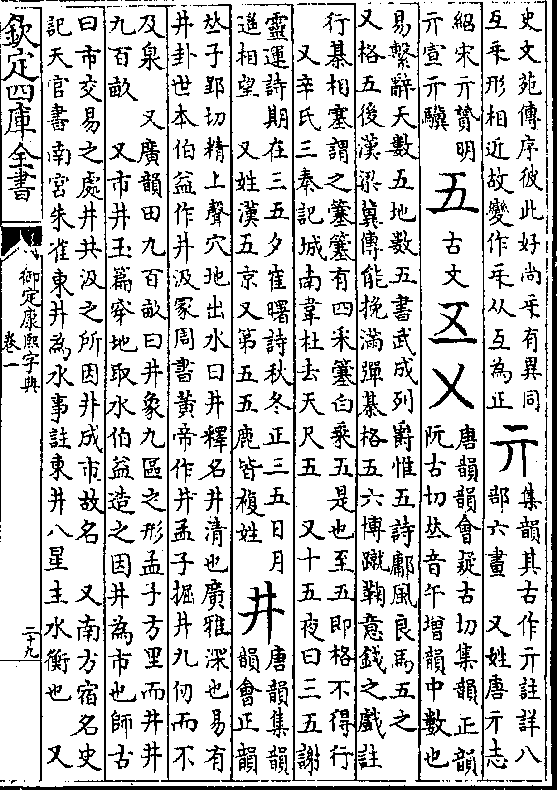 史文苑傳序彼此好尚𠀕有異同
互𠀕形相近故變作𠀕从互為正
亓
集韻其古作亓註詳八
部六畫 又姓唐亓志
紹宋亓贇明
亓宣亓驥
五 古文 𠄡 㐅
唐韻韻會疑古切集韻正韻
阮古切𠀤音午增韻中數也
易繫辭天數五地數五書武成列爵惟五詩鄘風良馬五之
又格五後漢梁冀傳能挽滿彈棊格五六博蹴鞠意錢之戲註
行棊相塞謂之簺簺有四采簺白乘五是也至五即格不得行
又辛氏三秦記城南韋杜去天尺五 又十五夜曰三五謝
靈運詩期在三五夕崔曙詩秋冬正三五日月
遥相望 又姓漢五京又第五五鹿皆複姓
井
唐韻集韻
韻會正韻
𠀤子郢切精上聲穴地出水曰井釋名井清也廣雅深也易有
井卦世本伯益作井汲冢周書黃帝作井孟子掘井九仞而不
及泉 又廣韻田九百畝曰井象九區之形孟子方里而井井
九百畝 又市井玉篇穿地取水伯益造之因井為市也師古
曰市交易之處井共汲之所因井成市故名 又南方宿名史
記天官書南宮朱雀東井為水事註東井八星主水衡也 又
欽定四庫全書
御定康熙字典
卷一
二十九